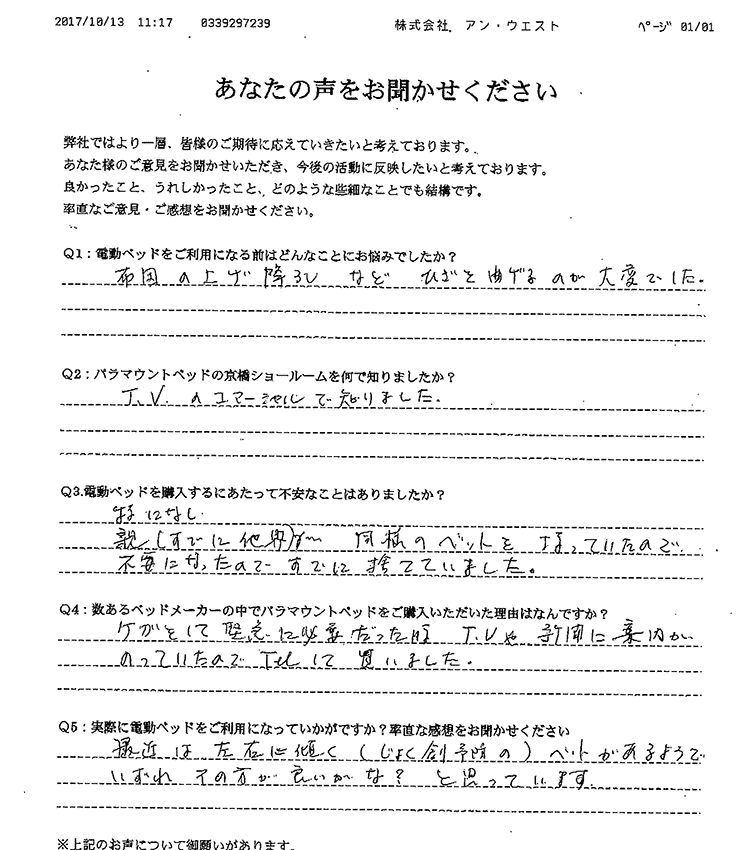 2017/10/13 11:17 0339297239 株式会社 アン・ウエスト ページ 01/01
あなたの声をお聞かせください
弊社ではより一層、皆様のご期待に応えていきたいと考えております。
あなた様のご意見をお聞かせいただき、今後の活動に反映したいと考えております。
良かったこと、うれしかったこと、どのような些細なことでも結構です。
率直なご意見・ご感想をお聞かせください。
Q1：電動ベッドをご利用になる前はどんなことにお悩みでしたか？
布団の上げ降ろし など ひざを曲げるのが大変でした。
Q2：パラマウントベッドの京橋ショールームを何で知りましたか？
T.V.のコマーシャルで知りました。
Q3.電動ベッドを購入するにあたって不安なことはありましたか？
特になし
親(すでに他界)が 同様のベットを なっていたので
不要になったので すでに捨てていました。
Q4：数あるベッドメーカーの中でパラマウントベッドをご購入いただいた理由はなんですか？
ケガをして緊急に必要だった時 T.Vや新聞に案内が
のっていたので Telして買いました。
Q5：実際に電動ベッドをご利用になっていかがですか？率直な感想をお聞かせください
最近は左右に傾く(じょく創予防の)ベットがあるようで
いずれ その方が良いかな？ と思っています
※上記のお声について御願いがあります。